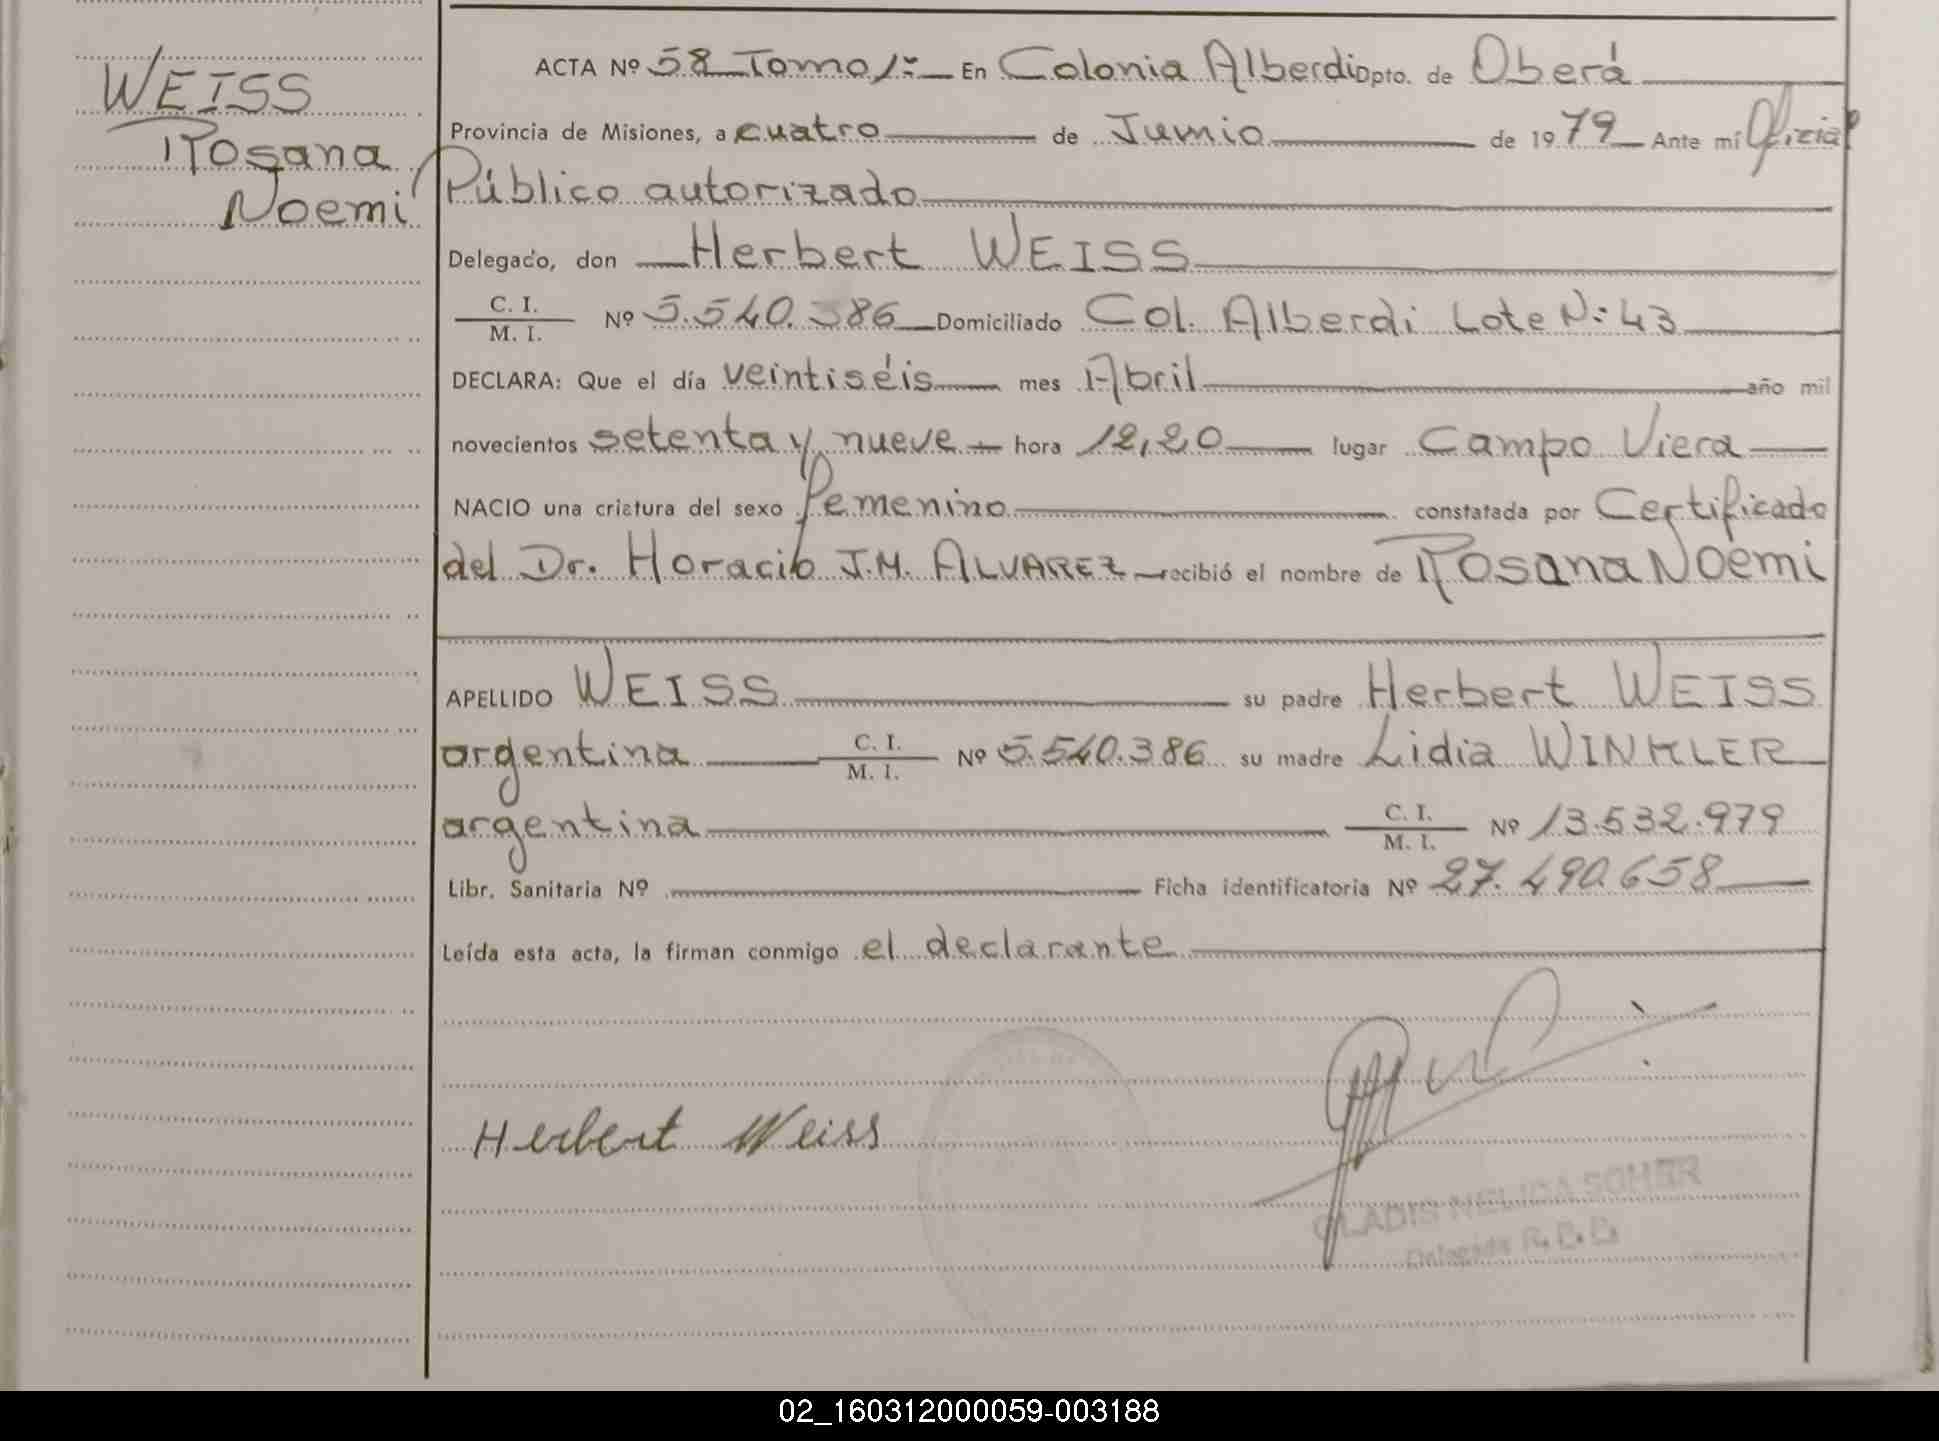 WEISS
Rosana
Noemi
ACTA Nº 58 Tomo 1º En Colonia Alberdi Dpto. de Oberá
Provincia de Misiones, a cuatro de Junio de 1979 Ante mí Oficial
Público autorizado
Delegado, don Herbert WEISS
C. I.
M. I. Nº 5.540.386 Domiciliado Col. Alberdi Lote Nº 43
DECLARA: Que el día veintiséis mes Abril año mil
novecientos setenta y nueve hora 12,20 lugar Campo Viera
NACIO una criatura del sexo femenino constatada por Certificado
del Dr. Horacio J.M. ALVAREZ recibió el nombre de Rosana Noemi
APELLIDO WEISS su padre Herbert WEISS
argentina C. I. M. I. Nº 5.540.386 su madre Lidia WINKLER
argentina C. I. M. I. Nº 13.532.979
Libr. Sanitaria Nº Ficha identificatoria Nº 27.490.658
Leída esta acta, la firman conmigo el declarante
Herbert Weiss
GLADIS NELIDA
Delegada R. C. C.
02_160312000059-003188